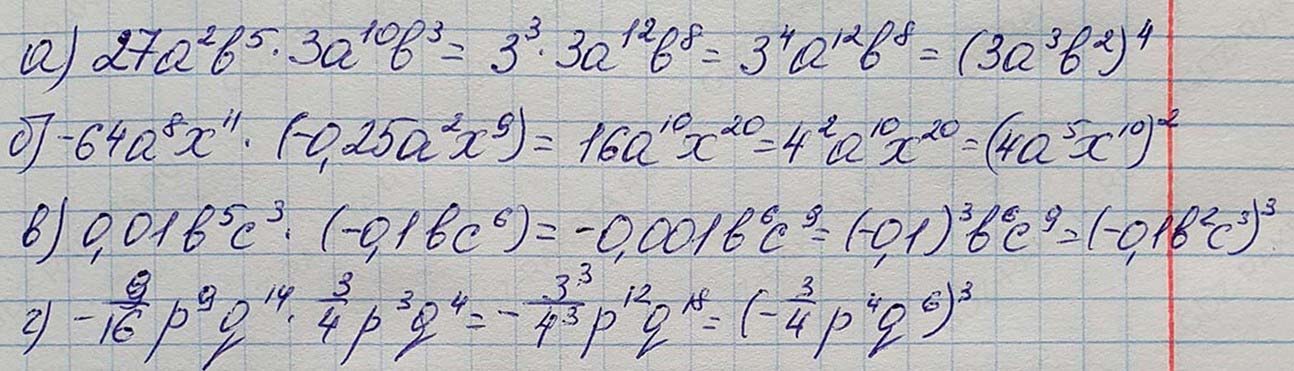 а) 27a²b⁵ · 3a¹⁰b³ = 3³ · 3a¹²b⁸ = 3⁴a¹²b⁸ = (3a³b²)⁴
б) -64a⁸x¹¹ · (-0,25a²x⁹) = 16a¹⁰x²⁰ = 4²a¹⁰x²⁰ = (4a⁵x¹⁰)²
в) 0,01b⁵c³ · (-0,1bc⁶) = -0,001b⁶c⁹ = (-0,1)³b⁶c⁹ = (-0,1b²c³)³
г) -9/16 p⁹q¹⁴ · 3/4 p³q⁴ = -3³/4³ p¹²q¹⁸ = (-3/4 p⁴q⁶)³